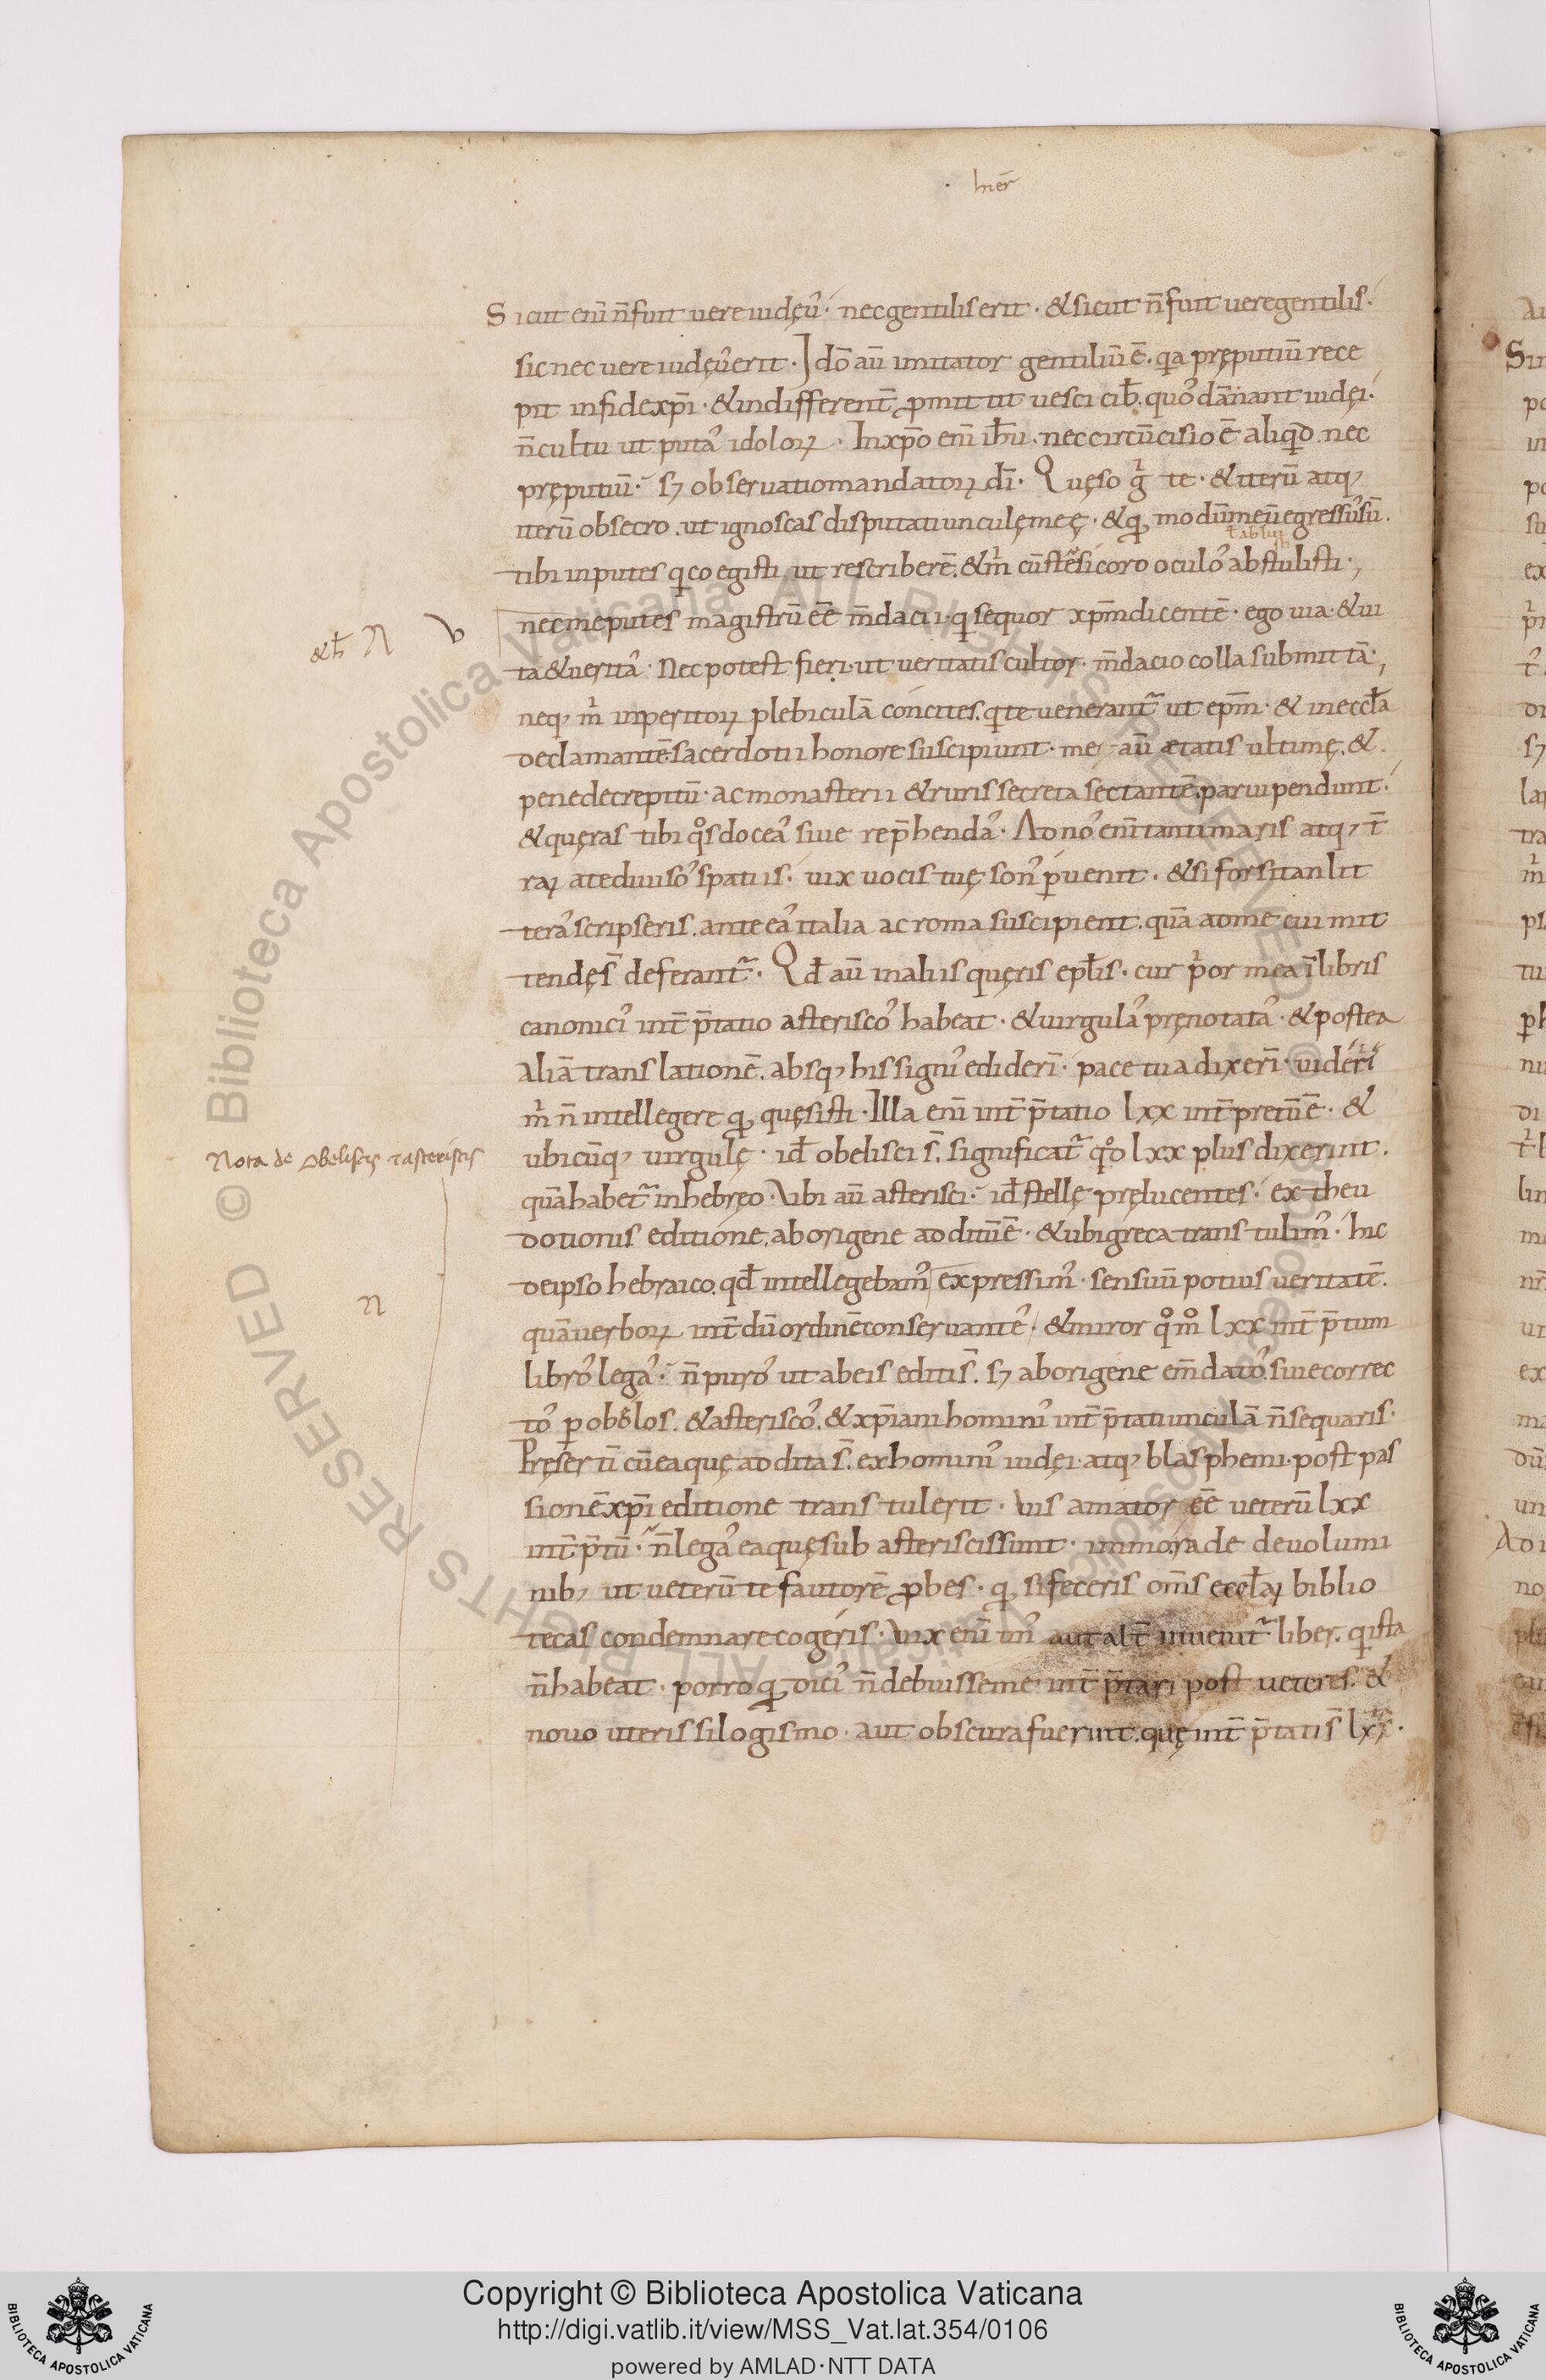 hieř
Sicut enī n̄ fuit uere iudęuˀ· nec gentilis erit · & sicut n̄ fuit uere gentilis·
sic nec uere iudęuˀ erit · Idō aū imitator gentiliū ē · qa pręputiū rece
pit in fide xp̄i · & indifferent̄ ꝓmittit uesci cib̄ · quoˀ dānant iudęi·
n̄ cultu ut putaˀ idoloꝝ · In xp̄o enī ih̄u · nec circūcisio ē aliqd · nec
pręputiū · sꝫ obseruatio mandatoꝝ dī · Quęso gͥ te · & iterū atqꝫ
iterū obsecro · ut ignoscas disputatiunculę meę · & qđ modū meū egressuˀ sū ·
ł abluͥ
tibi inputes qͥ coegisti ut rescriberē · & mͥ cū stesicoro oculoˀ abstulisti ·,
nec me putes magistrū eē m̄dacii · qͥ sequor xp̄m dicentē · ego uia · & ui
&h̄ N
ta & ueritaˀ · Nec potest fieri · ut ueritatis cultor · m̄dacio colla submittā ·,
neqꝫ mͥ inperitoꝝ plebiculā concites · qͥ te uenerant᷑ ut ep̄m · & in eccła
declamantē · sacerdotii honore suscipiunt · me aū ætatis ultimę · &
pene decrepitū · ac monasterii & ruris secreta sectantē · paruipendunt ·
& quęras tibi qͦs doceaˀ siue rep̄hendaˀ · Ad noˀ enī tanti maris atqꝫ t̄
raꝝ a te diuisoˀ spatiis · uix uocis tuę sonˀ ꝑuenit · & si forsitan lit
teraˀ scripseris · ante eaˀ italia ac roma suscipient · quā ad me cui mit
tendę s̄ deferant᷑ · Qđ aū in aliis quęris epłis · cur pͥor mea ī libris
canonicˀ int̄p̄tatio asteriscoˀ habeat · & uirgulaˀ pręnotataˀ · & postea
aliā translationē · absqꝫ his signˀ ediderī · pace tua dixerī · uiderˀ
mͥ n̄ intellegere qđ quęsisti · Illa enī int̄p̄tatio lxx int̄pretū ē · &
ubicūqꝫ uirgulę · id obelisci s̄ · significat᷑ qͦd lxx plus dixerint ·
Nota de obeliscis & asteriscis
quā habet᷑ in hebręo · Vbi aū asterisci · id stellę pręlucentes · ex theu
dotionis editione · ab origene additū ē · & ubi greca transtulimˀ · hic
de ipso hebraico · qđ intellegebamˀ expressimˀ · sensuū potius ueritatē ·
N
quā uerboꝝ int̄dū ordinē conseruanteˀ · & miror qͦm lxx int̄p̄tum
libroˀ legaˀ · n̄ puroˀ ut ab eis editi s̄ · sꝫ ab origene em̄datoˀ siue correc
toˀ p obelos · & asteriscoˀ · & xp̄iani hominˀ int̄p̄tatiunculā n̄ sequaris ·
Pręser tī cū ea quę addita s̄ · ex hominˀ iudęi · atqꝫ blasphemi · post pas
sionē xp̄i editione transtulerit · Vis amator eē ueterū lxx
int̄p̄tū · n̄ legaˀ ea quę sub asteriscis sunt · immo rade de uolumi
nibꝫ ut ueterū te fautorē ꝓbes · qđ si feceris om̄s eccłaꝝ biblio
tecas condemnare cogeris · Vix enī unˀ aut alt̄ inuenit᷑ liber · qͥ ista
n̄ habeat · porro qđ dicˀ n̄ debuisse me int̄p̄tari post ueteres · &
nouo uteris silogismo · aut obscura fuerunt · quę int̄p̄tati s̄ lxx ·
Copyright © Biblioteca Apostolica Vaticana
http://digi.vatlib.it/view/MSS_Vat.lat.354/0106
powered by AMLAD·NTT DATA